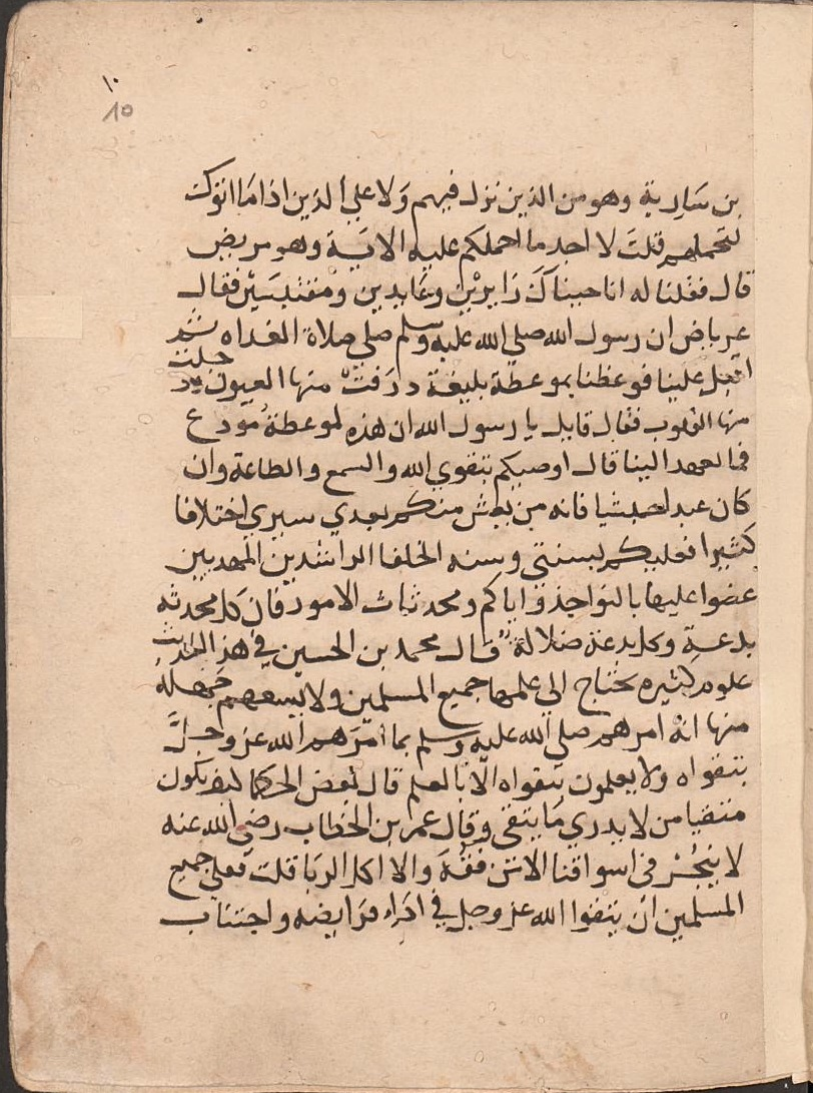 ١٠
10
بن سَارية وهو من الذين نزل فيهم وَلا علي الذين اذا مَا اتوك
لتحملهم قلتَ لا اجد ما احملكم عليه الايَة وهو مريض
قال فقلنا له انا جيناكَ زَايريْن وعَايدين ومقتبسَيْن فقال
عرباض ان رسول الله صلي الله عليه وسلم صلي صلاة الغداه ثم
اقبل علينا فوعظنا بموعظة بليغة ذرَفتْ منها العيون وجلت
منها القلوب فقال قايل يا رسول الله ان هذه لموعظةُ مُودع
فما تعهد الينا قال اوصيكم بتقوي الله والسمع والطاعة وان
كان عبدا حبشيا فانه من يعش منكم بعدي سيري اختلافا
كثيرا فعليكم بسنتي وسنه الخلفا الراشدين المهديين
عضوا عليها بالنواجذ واياكم ومحدثات الامور فان كل محدثه
بدعةٍ وكل بدعة ضلالة قال محمد بن الحسين في هذا الحديث
علوم كثيره يحتاج الي علمها جميع المسلمين ولا يسعهم جَهله
منها انهُ امرهم صلي الله عليه وسلم بما امرَهم الله عز وجلَّ
بتقواه ولا يعلمون تقواه الّا بالعلم قال بعض الحكما كيف يكون
متقيا من لا يدري مَا يتقي وقال عمر بن الخطاب رضي الله عنه
لا يتجُرْ في اسواقنا الا من فقُهَ والا اكل الربَا قلت فعلي جميع
المسلمين ان يتقوا الله عز وجل في ادَاء فرَايضه واجتناب